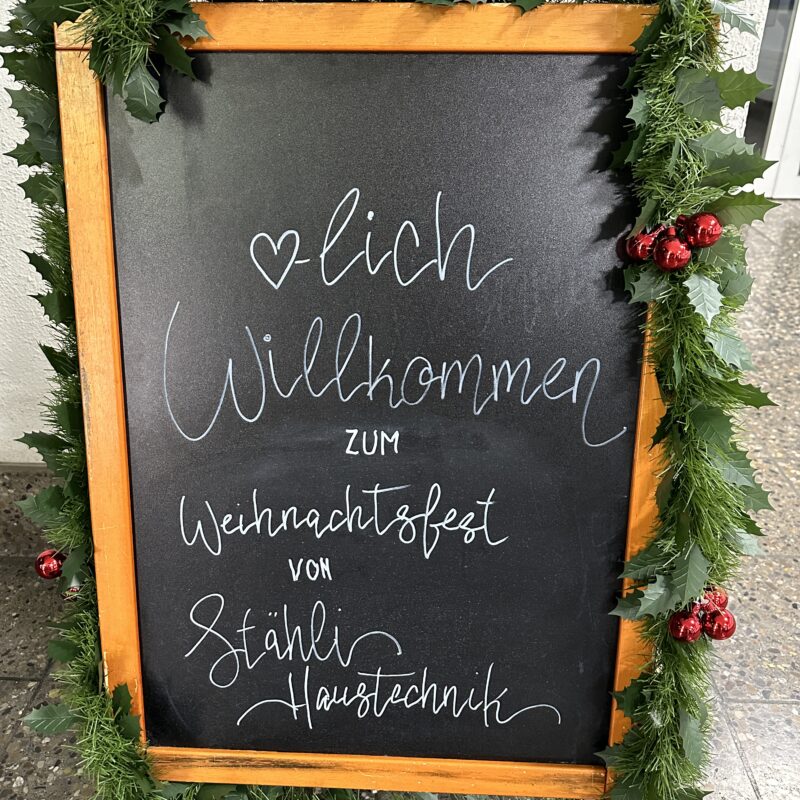 ♡-lich
Willkommen
ZUM
Weihnachtsfest
VON
Stähli
Haustechnik